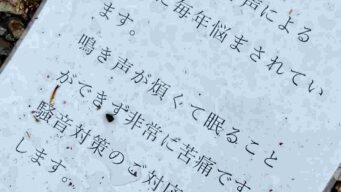 声による
に毎年悩まされてい
ます。
鳴き声が煩くて眠ること
ができず非常に苦痛です
騒音対策のご対
します。